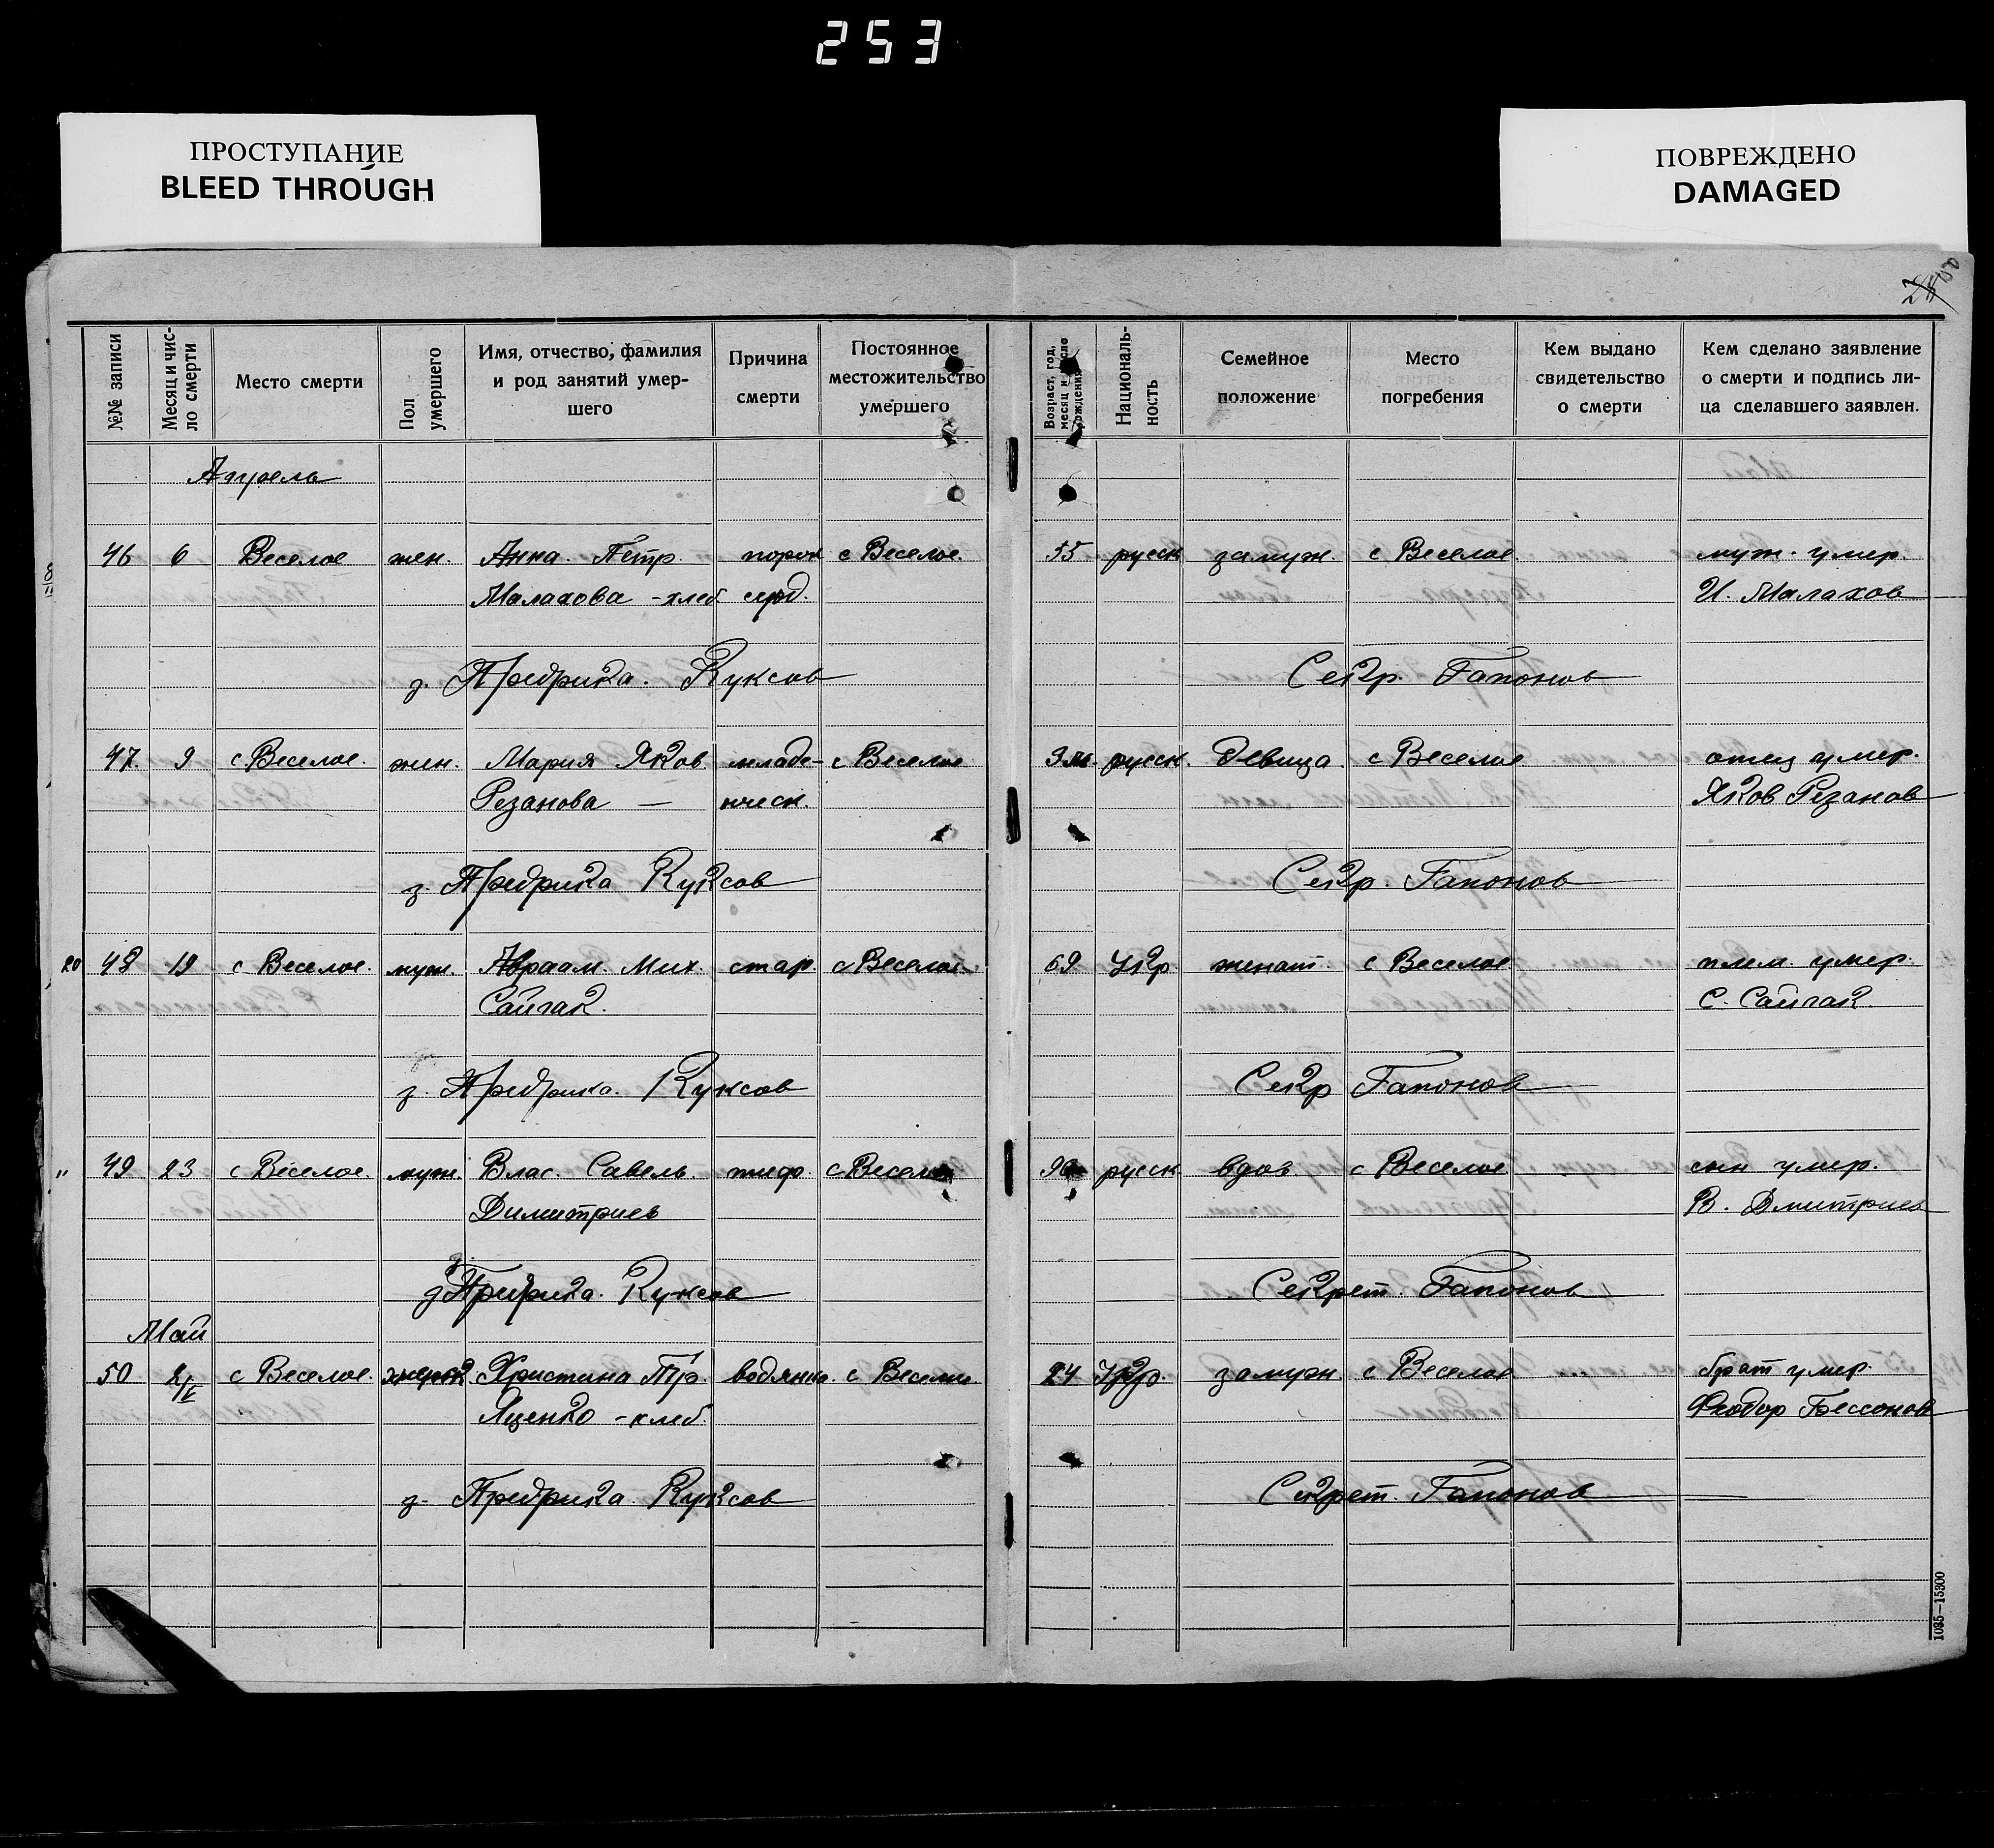 253
ПРОСТУПАНИЕ
BLEED THROUGH
ПОВРЕЖДЕНО
DAMAGED
№№ записи
Месяц и число смерти
Место смерти
Пол умершего
Имя, отчество, фамилия
и род занятий умер-
шего
Причина
смерти
Постоянное
местожительство
умершего
Возраст, год, месяц и число рождения
Националь-
ность
Семейное
положение
Место
погребения
Кем выдано
свидетельство
о смерти
Кем сделано заявление
о смерти и подпись ли-
ца сделавшего заявлен.
Апрель
46 6 Веселое жен. Анна. Петр. порок с Веселое. 55 русск замуж. с Веселое муж. умер.
Малахова - хлеб серд. И. Малахов
з. Предрика. Куксов Секр. Гапонов
47. 9 с Веселое. жен. Мария Яков. младе- с Веселое 3 м. русск. Девица. с Веселое отец умер.
Резанова — ническ. Яков Резанов
з. Предрика Куксов Секр. Гапонов
20 48 19 с Веселое. муж. Авраам. Мих. стар. с Веселое 69 Укр женат. с Веселое плем. умер.
Сайгак. С. Сайгак
з. Предрика. Куксов Секр Гапонов
" 49 23 с Веселое. муж. Влас. Савель. тиф. с Веселое русск вдов с Веселое сын умер.
Димитриев В. Дмитриев
з Предрика. Куксов Секрет. Гапонов
Май
50 2/V с Веселое. Христина Гр. водянка. с Веселое 24 Укр. замуж с Веселое брат умер.
Яценко - хлеб. Феодор Бессонов
з. Предрика Куксов Секрет. Гапонов
1035—15300